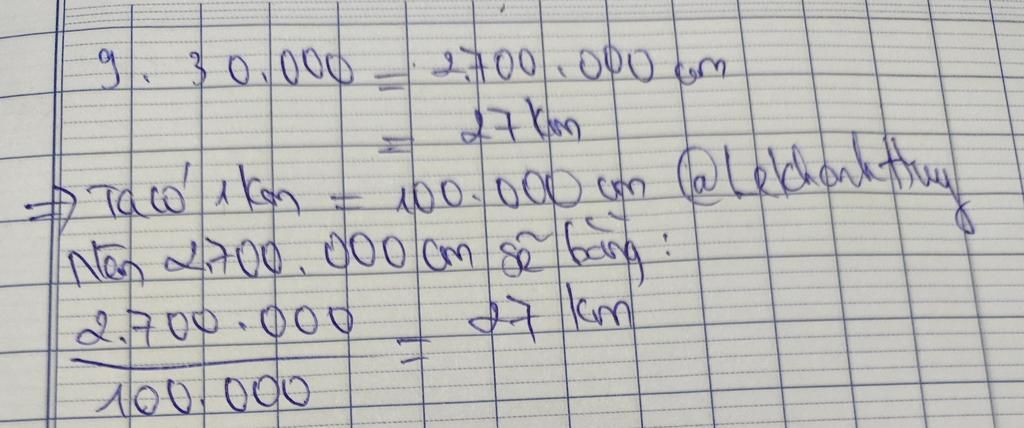 9. 30.000 = 2.700.000 cm
= 27 km
⇒ Ta có 1 km = 100.000 cm @Lekhanhthuy
Nên 2.700.000 cm sẽ bằng:
2.700.000 = 27 km
100.000